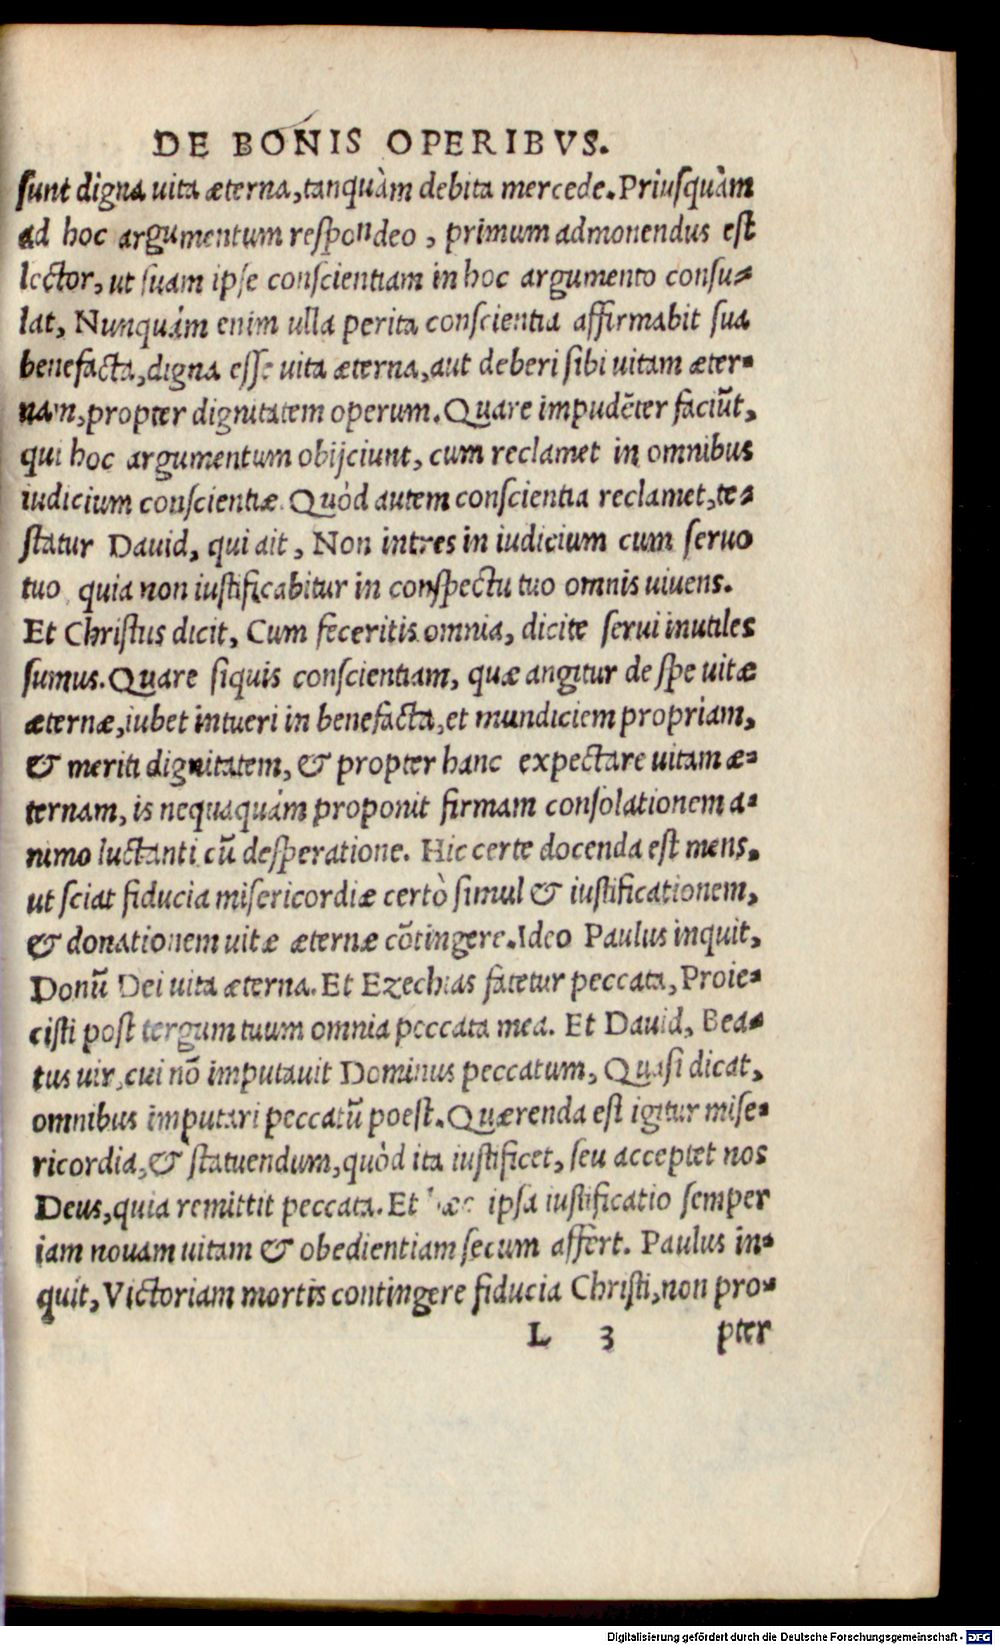 DE BONIS OPERIBVS.
sunt digna uita æterna, tanquàm debita mercede. Priusquàm
ad hoc argumentum respondeo, primum admonendus est
lector, ut suam ipse conscientiam in hoc argumento consu-
lat, Nunquám enim ulla perita conscientia affirmabit sua
benefacta, digna esse uita æterna, aut deberi sibi uitam æter-
nam, propter dignitatem operum. Quare impudēter faciūt,
qui hoc argumentum obijciunt, cum reclamet in omnibus
iudicium conscientiæ. Quòd autem conscientia reclamet, te-
statur Dauid, qui ait, Non intres in iudicium cum seruo
tuo, quia non iustificabitur in conspectu tuo omnis uiuens.
Et Christus dicit, Cum feceritis omnia, dicite serui inutiles
sumus. Quare siquis conscientiam, quæ angitur de spe uitæ
æternæ, iubet intueri in benefacta, et mundiciem propriam,
& meriti dignitatem, & propter hanc expectare uitam æ-
ternam, is nequaquám proponit firmam consolationem a-
nimo luctanti cū desperatione. Hic certe docenda est mens,
ut sciat fiducia misericordiæ certò simul & iustificationem,
& donationem uitæ æternæ cōtingere. Ideo Paulus inquit,
Donū Dei uita æterna. Et Ezechias fatetur peccata, Proie-
cisti post tergum tuum omnia peccata mea. Et Dauid, Bea-
tus uir, cui nō imputauit Dominus peccatum, Quasi dicat,
omnibus imputari peccatū poest. Quærenda est igitur mise-
ricordia, & statuendum, quòd ita iustificet, seu acceptet nos
Deus, quia remittit peccata. Et hæc ipsa iustificatio semper
iam nouam uitam & obedientiam secum affert. Paulus in-
quit, Victoriam mortis contingere fiducia Christi, non pro-
L 3 pter
Digitalisierung gefördert durch die Deutsche Forschungsgemeinschaft - DFG